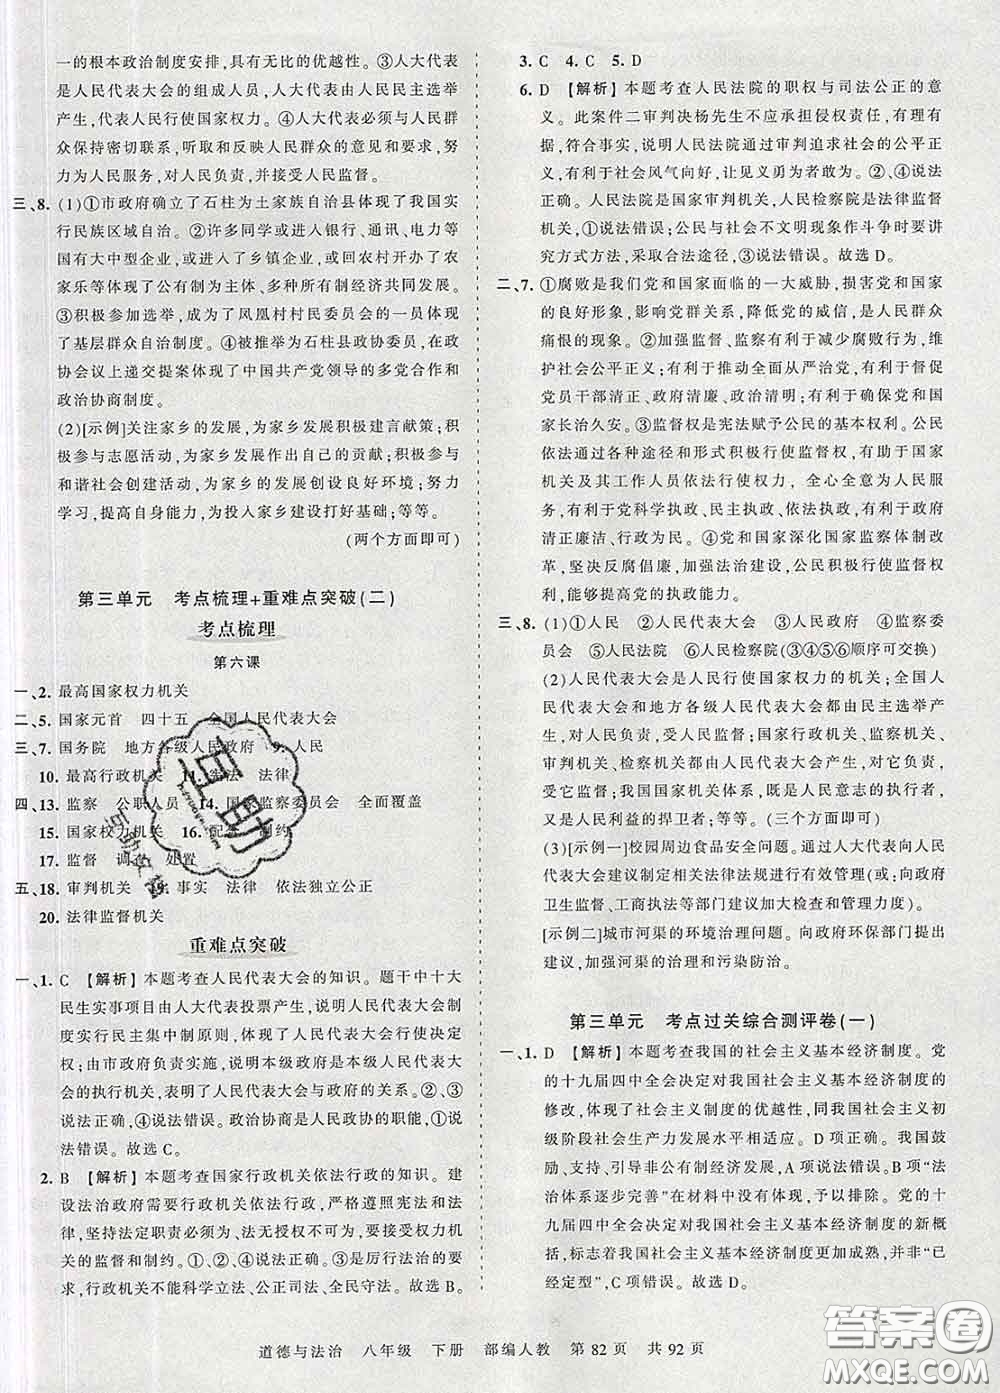 一的根本政治制度安排,具有无比的优越性。③人大代表
是人民代表大会的组成人员,人大代表由人民民主选举
产生,代表人民行使国家权力。④人大代表必须与人民群
众保持密切联系,听取和反映人民群众的意见和要求,努
力为人民服务,对人民负责,并接受人民监督。
三、8. (1)①市政府确立了石柱为土家族自治县体现了我国实
行民族区域自治。②许多同学或者进入银行、通讯、电力等
国有大中型企业,或者进入了乡镇企业,或者回农村开办了农
家乐等体现了公有制为主体、多种所有制经济共同发展。
③积极参加竞选,成为了凤凰村村民委员会的一员体现
了基层群众自治制度。④被推举为石柱县政协委员,在政
协会议上递交提案体现了中国共产党领导的多党合作和
政治协商制度。
(2)[示例]关注家乡的发展,为家乡发展积极建言献策;积
极参与志愿活动,为家乡发展作出自己的贡献;积极参与
和谐社会创建活动,为家乡的发展创设良好环境;努力
学习,提高自身能力,为投入家乡建设打好基础;等等。
(两个方面即可)
第三单元 考点梳理+重难点突破(二)
考点梳理
第六课
一、2. 最高国家权力机关
二、5. 国家元首 四十五 全国人民代表大会
三、7. 国务院 地方各级人民政府 9. 人民
10. 最高行政机关 11. 宪法 法律
四、13. 监察 公职人员 14. 国家监察委员会 全面覆盖
15. 国家权力机关 16. 配合 制约
17. 监督 调查 处置
五、18. 审判机关 19. 事实 法律 依法独立公正
20. 法律监督机关
重难点突破
一、1. C 【解析】本题考查人民代表大会的知识。题干中十大
民生实事项目由人大代表投票产生,说明人民代表大会制度
实行民主集中制原则,体现了人民代表大会行使决定
权;由市政府负责实施,说明本级政府是本级人民代表大会
的执行机关,体现了人民代表大会与政府的关系。②、③
说法正确,④说法错误。政治协商是人民政协的职能,①说
法错误。故选C。
2. B 【解析】本题考查国家行政机关依法行政的知识。建
设法治政府需要行政机关依法行政,严格遵照宪法和法
律,坚持法定职责必须为、法无授权不可为,接受权力机关
的监督和制约。①、②、④说法正确;③是厉行法治的要
求,行政机关不能科学立法、公正司法、全民守法。故选B。
3. C 4. C 5. D
6. D 【解析】本题考查人民法院的职权与司法公正的意
义。此案件二审判决杨先生不应承担补偿责任,有利于
弘扬正能量,说明人民法院通过审判追求社会的公平正
义,有利于社会风气向好,让见义勇为者无忧。②、④说法
正确。人民法院是国家审判机关,人民检察院是法律监督
机关,①说法错误;公民与社会不文明现象作斗争时要讲
究方式方法,采取合法途径,③说法错误。故选D。
二、7. ①腐败是我们党和国家面临的一大威胁,损害党和国家
的良好形象,影响党群关系,降低党的威信,是人民群众
痛恨的现象。②加强监督、监察有利于减少腐败行为,维
护社会公平正义;有利于推动全面从严治党;有利于督促
党员干部清正、政府清廉、政治清明;有利于确保人民和国
家长治久安。③监督权是宪法赋予公民的基本权利。公民
依法通过各种途径和形式积极行使监督权,有助于国家
机关及其工作人员依法行使权力、全心全意为人民服
务,有利于党科学执政、民主执政、依法执政,有利于政府
清正廉洁、勤政为民。④党和国家深化国家监察体制改
革,坚定不移反腐倡廉,加强法治建设,有利于保证党始
终同人民站在一起,提高党的执政能力。
三、8. (1)①人民 ②人民代表大会 ③人民政府 ④监察委
员会 ⑤人民法院 ⑥人民检察院(③④⑤⑥顺序可交换)
(2)人民代表大会是人民行使国家权力的机关,全国人
民代表大会和地方各级人民代表大会都由民主选举产
生,对人民负责,受人民监督;国家行政机关、监察机关、
审判机关、检察机关都由人民代表大会产生,对它负责、
受它监督;我国国家机关是执行者,人民意志的执行者,
又是人民利益的捍卫者;等等。(三个方面即可)
(3)[示例一]校园周边食品安全问题。通过人大代表向人民代表
大会建议制定相关法律法规进行有效管理(或;向政府
卫生监督、工商执法等部门建议加大检查和管理力度)。
[示例二]城市河渠的环境治理问题。向政府环保部门建
议,加强河渠的治理和污染防治。
第三单元 考点过关综合测评卷(一)
一、1. D 【解析】本题考查我国的社会主义基本经济制度。党
的十九届四中全会决定对我国社会主义基本经济制度的
修改,体现了社会主义制度的优越性,同我国社会主义初
级阶段社会生产力发展水平相适应。D项正确。我国鼓
励、支持、引导非公有制经济发展,A项说法错误。B项“法
治体系逐步完善”在材料中没有体现,排除。党的十九
届四中全会决定对我国社会主义基本经济制度的新概
括,标志着我国社会主义基本经济制度更加成熟,并非“已
经定型”,C项错误。故选D。
道德与法治 八年级 下册 部编人教 第 82 页 共 92 页
互助
答案圈
MXQE.COM